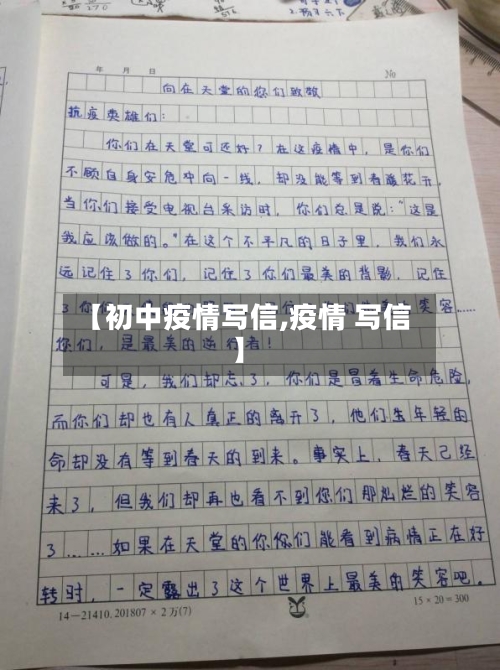 年 月 日
No
向在天堂的您们致敬
抗疫英雄们：
你们在天堂可还好？在这疫情中，是你们
不顾自身安危冲向一线，却没能等到春暖花开，
当你们接受电视台采访时，你们总是说：“这是
我应该做的。”在这个不平凡的日子里，我们永
远记住了你们，记住了你们最美的背影，记住
了你们
笑容……
【初中疫情写信,疫情 写信
】
您们，是最美的逆行者！
可是，我们却忘了，你们是冒着生命危险，
而你们却也有人真正的离开了，他们生年轻的
命却没有等到春天的到来。事实上，春天已经
来了，但我们却再也看不到你们那灿烂的笑容
了……如果在天堂的你你们能看到病情正在好
转时，一定露出了这个世界上最美的笑容吧。
14—21410.201807×2万(7)
15×20=300